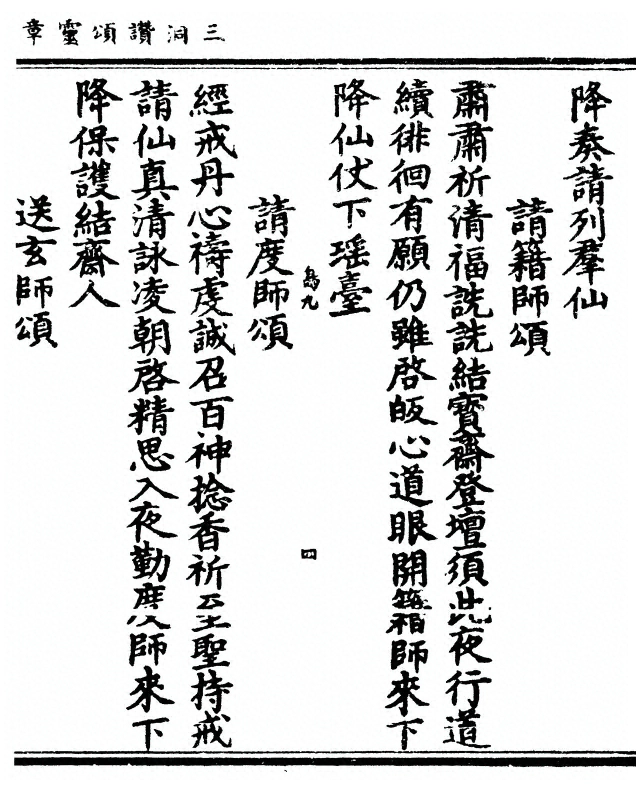 三洞讚頌靈章
降奏請列羣仙
請籍師頌
肅肅祈清福詵詵結寶齋登壇須此夜行道
續徘徊有願仍雖啓皈心道眼開籍師來下
降仙仗下瑤臺
鳥九
四
請度師頌
經戒丹心禱虔誠召百神捻香祈至聖持戒
請仙真清詠凌朝啓精思入夜勤度師來下
降保護結齋人
送玄師頌